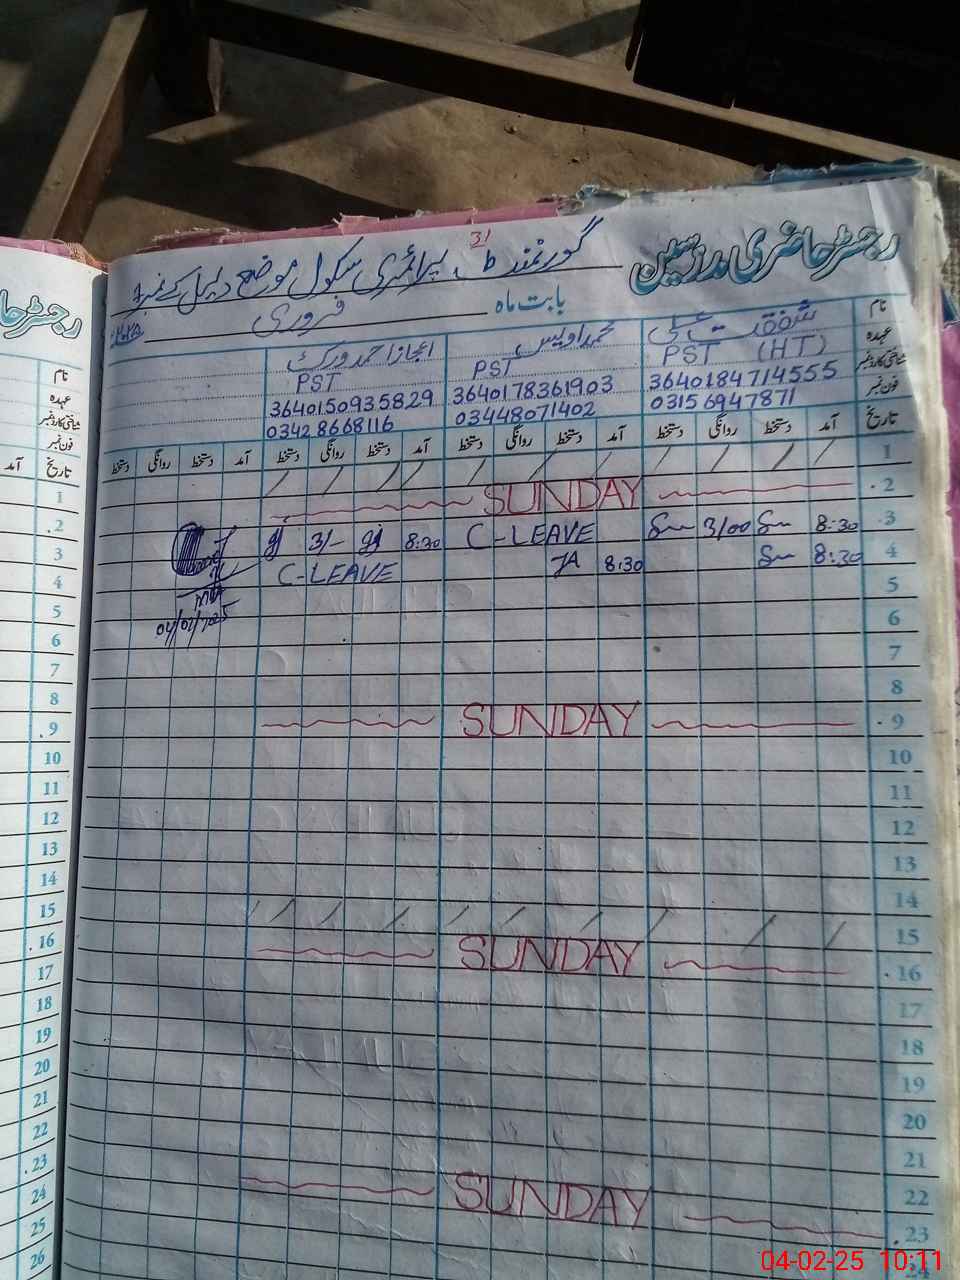 رجسٹر حاضری مدرسین
31
گورنمنٹ پرائمری سکول موضع دپال کے نمبر 1
بابت ماہ فروری
نام شفقت علی محمد اویس اعجاز احمد ورک
عہدہ PST (HT) PST PST
شناختی کارڈ نمبر 3640184714555 3640178361903 3640150935829
فون نمبر 03156947871 03448071402 03428668116
تاریخ آمد دستخط روانگی دستخط آمد دستخط روانگی دستخط آمد دستخط روانگی دستخط آمد دستخط روانگی دستخط
1
2 SUNDAY
3 8:30 3/00 C-LEAVE 8:30 3/-
4 8:30 8:30 C-LEAVE
5
04/02/2025
6
7
8
9 SUNDAY
10
11
12
13
14
15
16 SUNDAY
17
18
19
20
21
22
23 SUNDAY
24
رجسٹر حا
نام
عہدہ
شناختی کارڈ نمبر
فون نمبر
تاریخ آمد
1
2
3
4
5
6
7
8
9
10
11
12
13
14
15
16
17
18
19
20
21
22
23
24
25
26
04-02-25 10:11